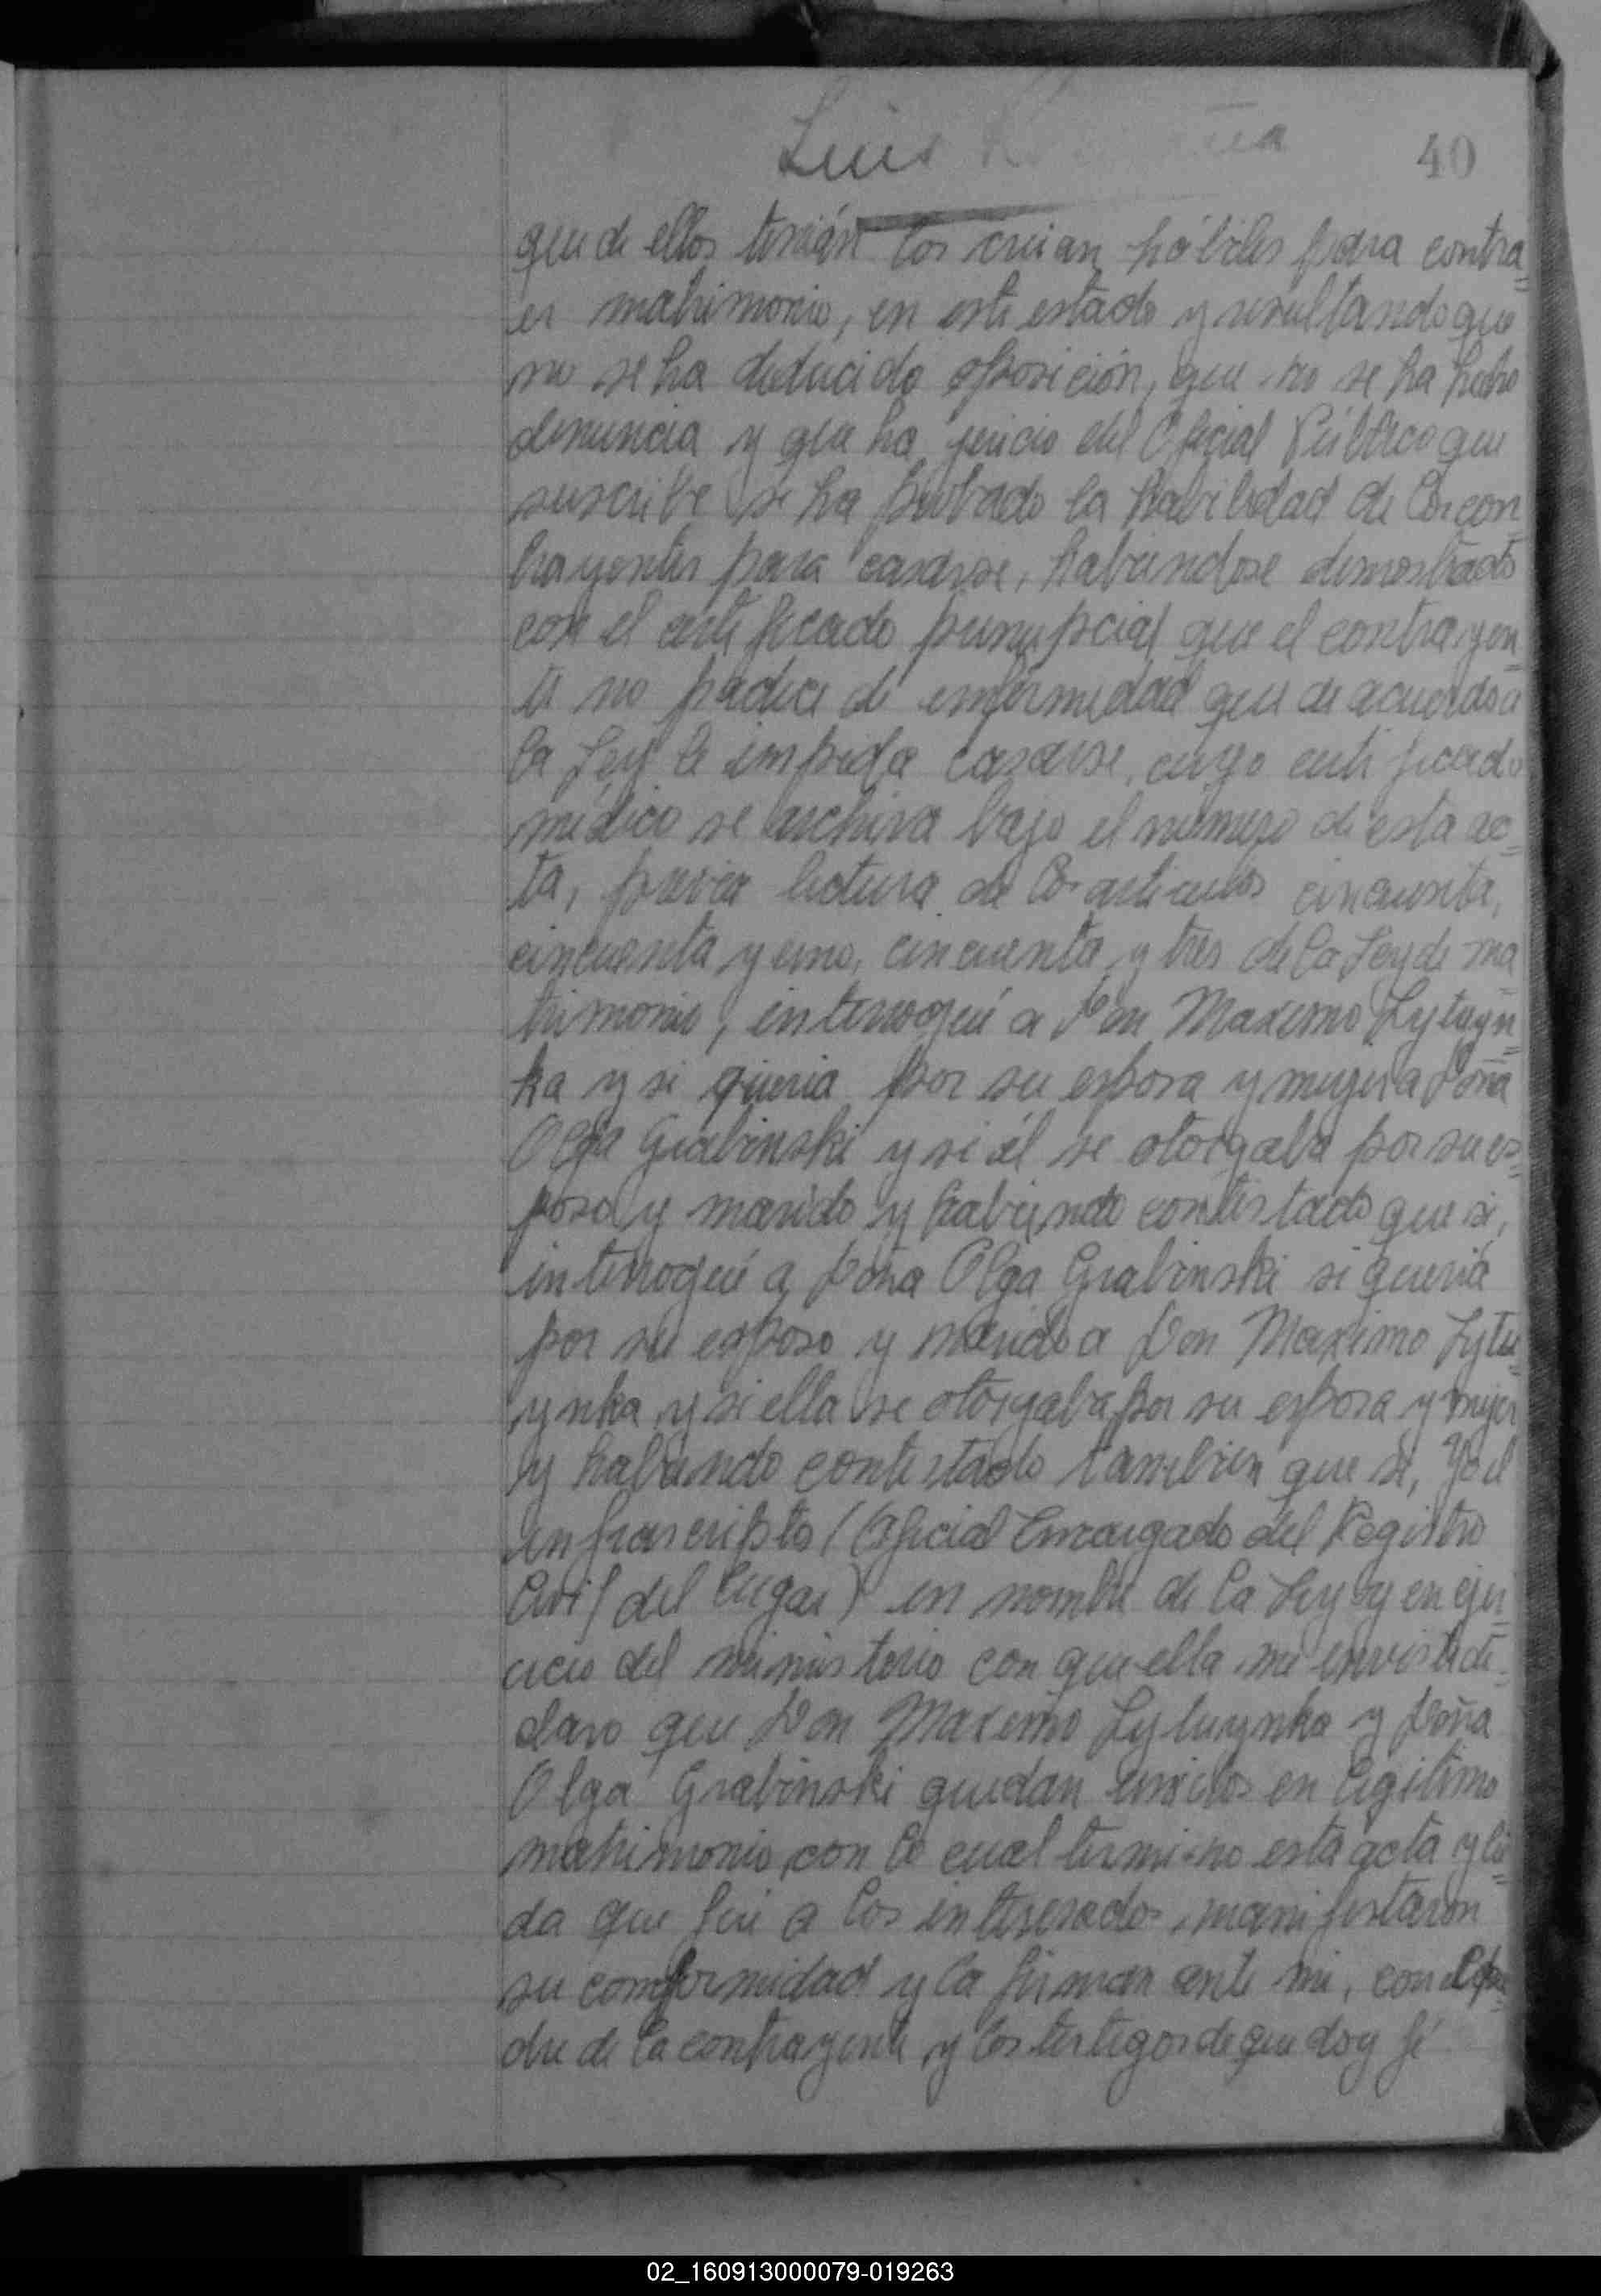 Luis
40
que de ellos tenián los creian hábiles para contra=
er matrimonio, en este estado y resultando que
no se ha deducido oposición, que no se ha hecho
denuncia y que ha juicio del Oficial Público que
suscribe se ha probado la habilidad de los con
trayentes para casarse, habiendose demostrado
con el certificado prenupcial que el contrayen=
te no padece de enfermedad que de acuerdo a
la Ley le impida casarse, cuyo certificado
médico se archiva bajo el número de esta ac=
ta, previa lectura de los articulos cincuenta,
cincuenta y uno, cincuenta y tres de la Ley de ma=
trimonio, interrogué a Don Maximo Lytuyn=
ka y si queria por su esposa y mujer a Doña
Olga Grabinski y si él se otorgaba por su es=
poso y marido y habiendo contestado que si,
interrogué a Doña Olga Grabinski si queriá
por su esposo y marido a Don Maximo Lytu=
ynka y si ella se otorgaba por su esposa y mujer
y habiendo contestado tambien que si, Yo el
infrascripto (Oficial Encargado del Registro
Civil del lugar) en nombre de la Ley y en ejer=
cicio del ministerio con que ella me enviste de=
claro que Don Maximo Lytuynka y Doña
Olga Grabinski quedan unidos en legitimo
matrimonio, con lo cual termino esta acta y leí=
da que fué a los interesados, manifestaron
su conformidad y la firman ante mi, con el pa=
dre de la contrayente y los testigos de que doy fé
02_160913000079-019263